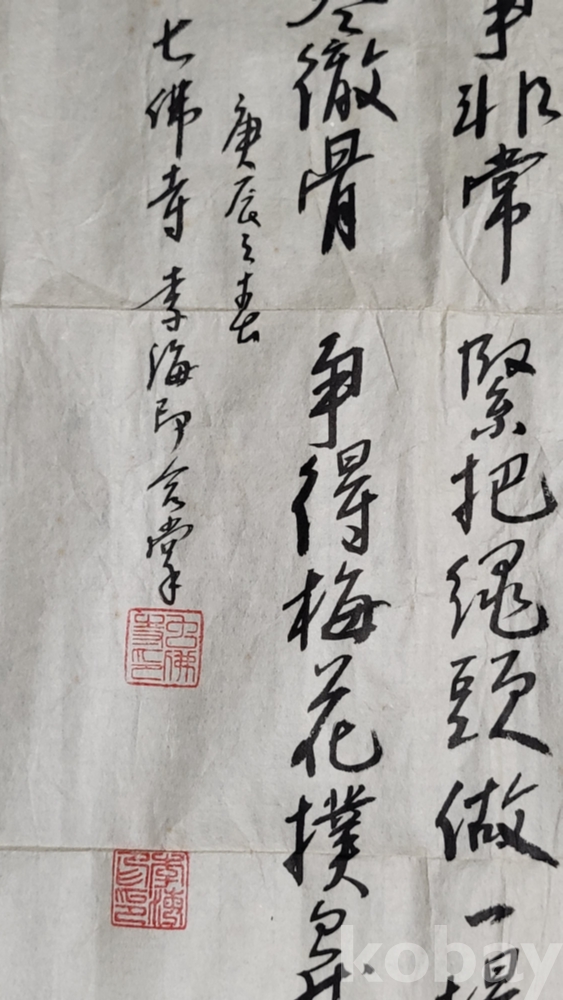 事非常 緊把繩頭做一場
徹骨 爭得梅花撲鼻
庚辰之春
七佛寺 李海印合掌
七佛寺印
kobay